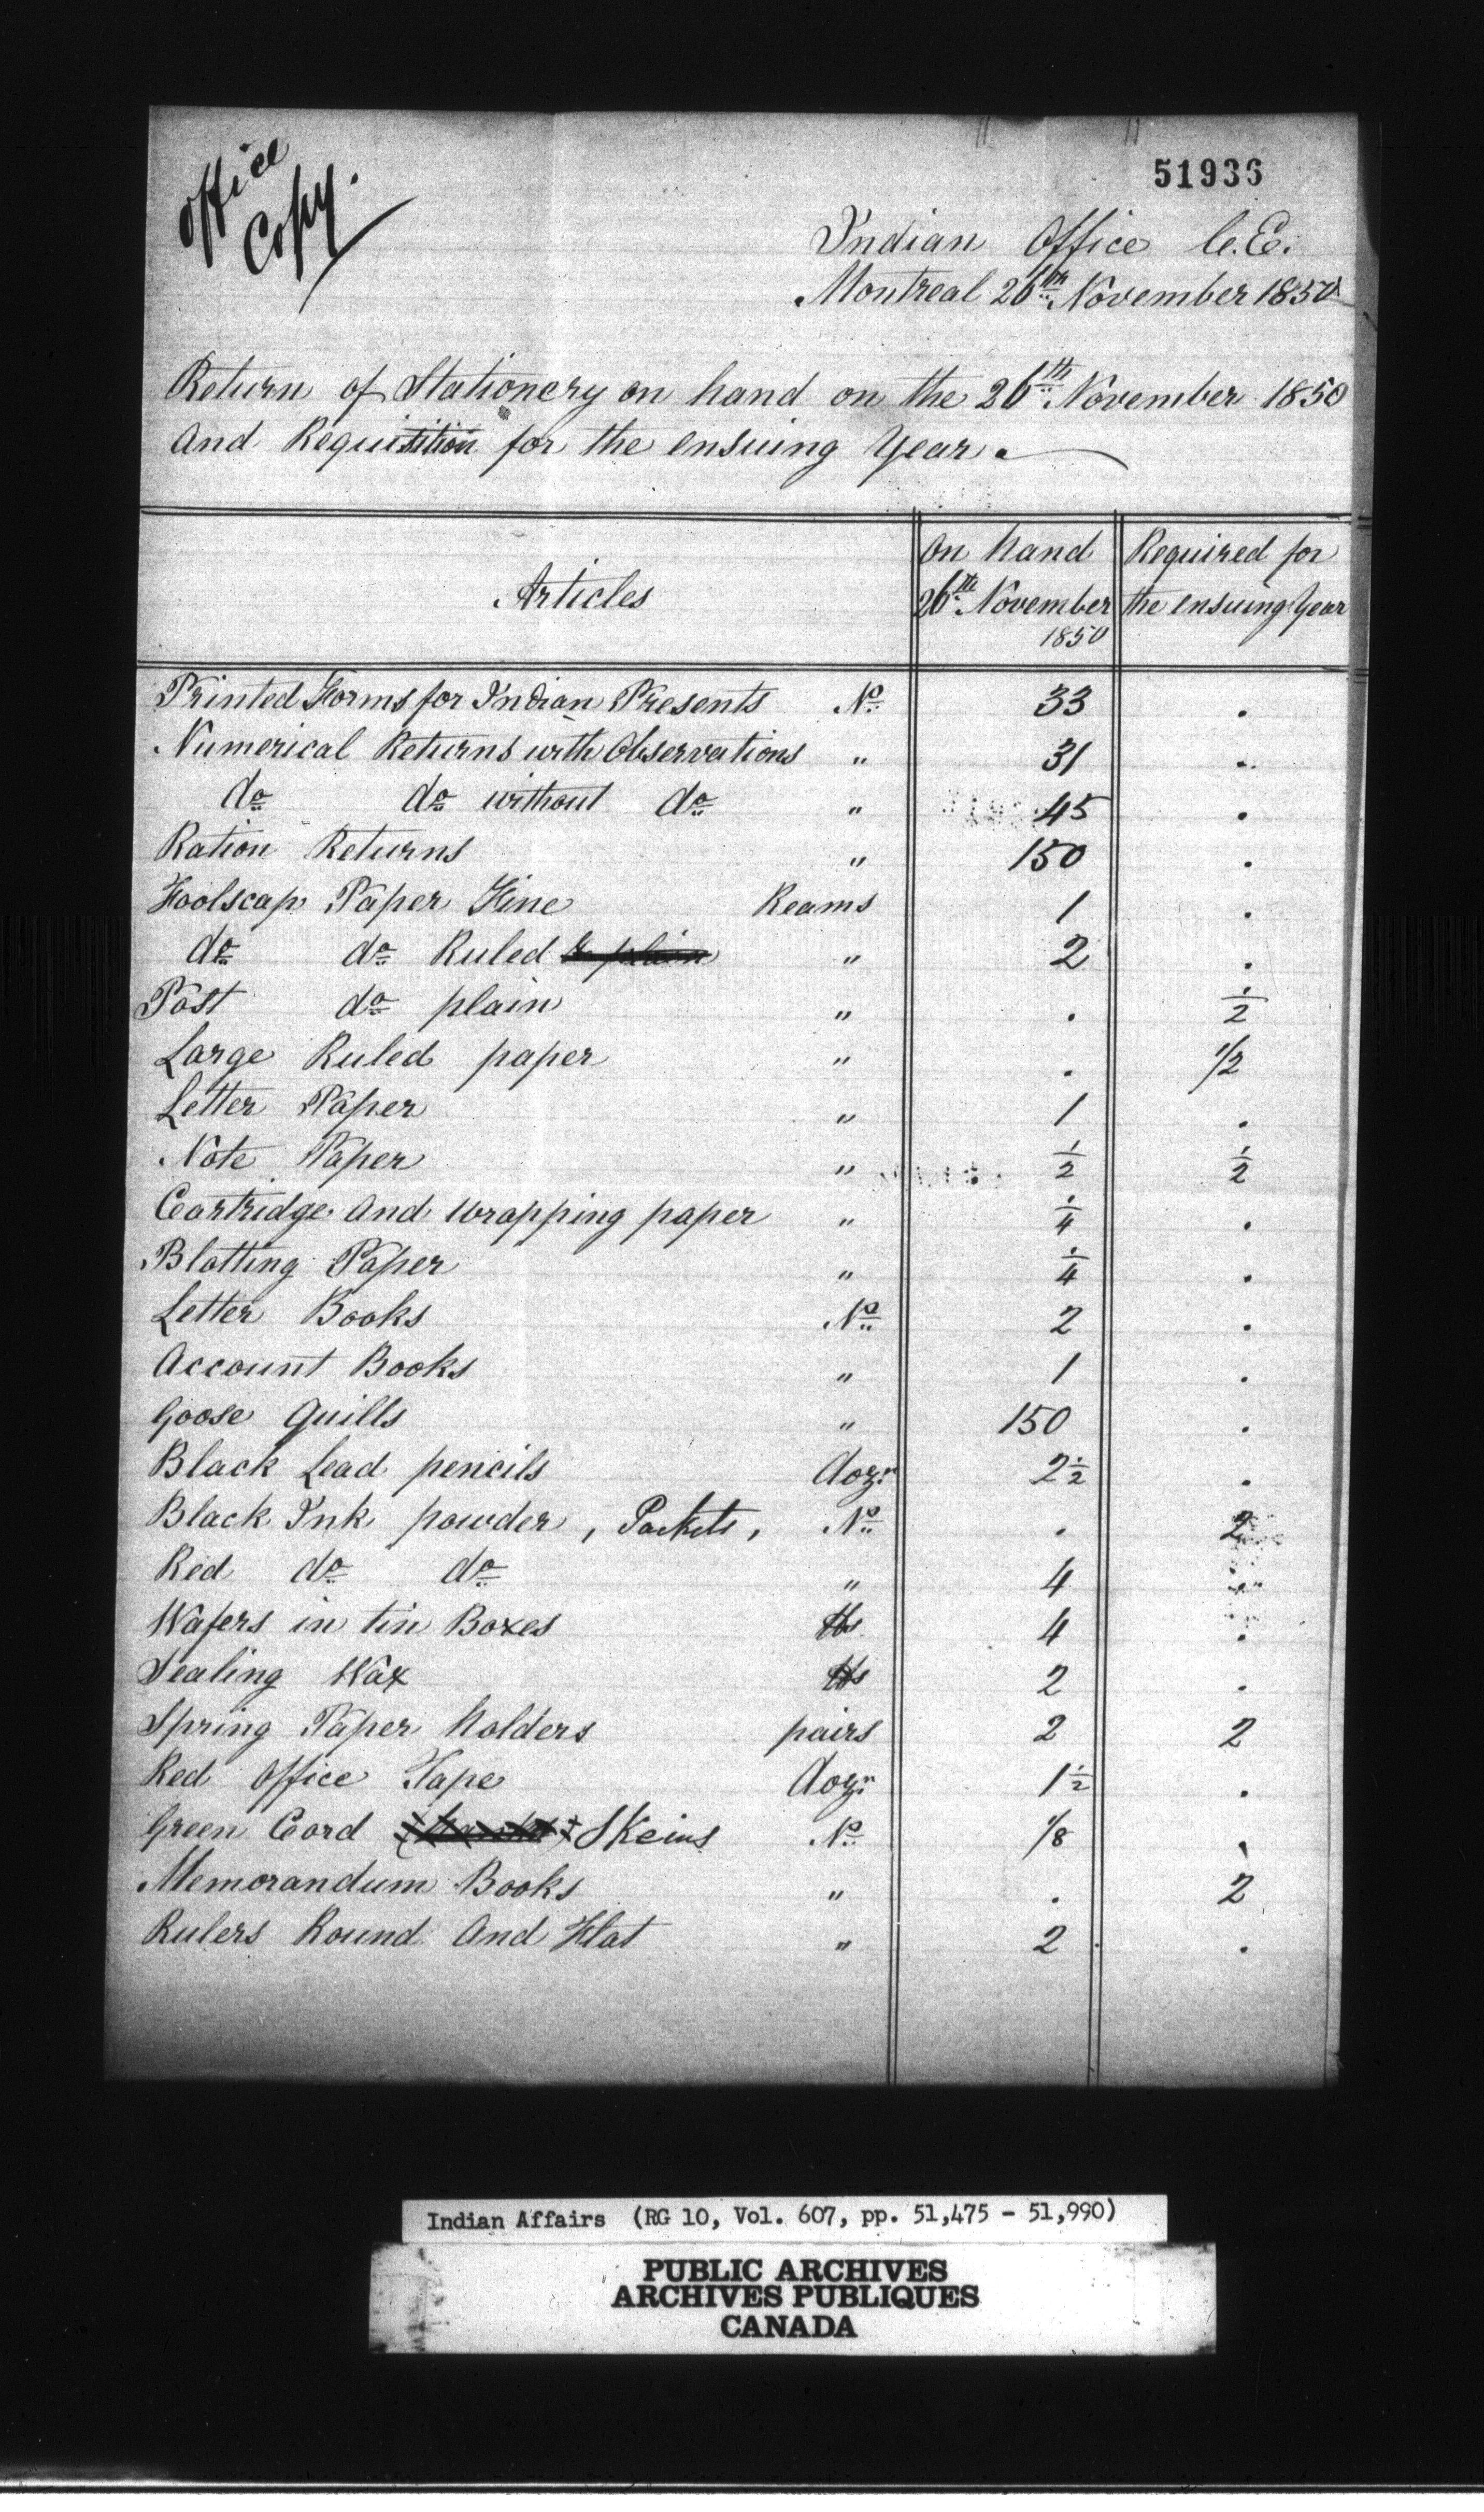 Office
Copy.
51936
Indian Office C.E.
Montreal 26th November 1850
Return of Stationery on hand on the 26th November 1850
And Requisition for the ensuing Year.
Articles
On hand 26th November 1850
Required for the ensuing Year
Printed Forms for Indian Presents No. 33 .
Numerical Returns with Observations " 31 ..
do do without do " 45 .
Ration Returns " 150 .
Foolscap Paper Fine Reams 1 .
do do Ruled & plain " 2 .
Post do plain " . 1/2
Large Ruled paper " . 1/2
Letter Paper " 1 .
Note Paper " 1/2 1/2
Cartridge And Wrapping paper " 1/4 .
Blotting Paper " 1/4 .
Letter Books No. 2 .
Account Books " 1 .
Goose Quills " 150 .
Black Lead pencils dozn 2 1/2 .
Black Ink powder, Packets, No. . 2
Red do do " 4 ..
Wafers in tin Boxes lbs 4 .
Sealing Wax lbs 2 .
Spring Paper holders pairs 2 2
Red Office Tape dozn 1 1/2 .
Green Cord Skeins No. 1/8 .
Memorandum Books " . 2
Rulers Round And Flat " 2 .
Indian Affairs (RG 10, Vol. 607, pp. 51,475 - 51,990)
PUBLIC ARCHIVES
ARCHIVES PUBLIQUES
CANADA